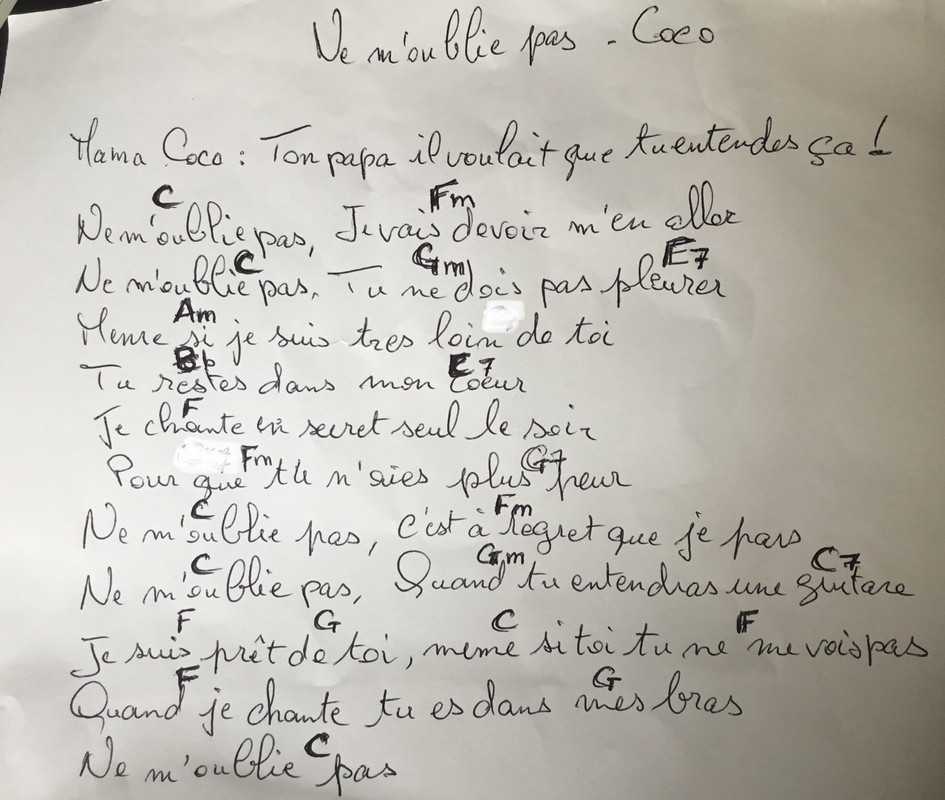 Ne m'oublie pas - Coco
Mama Coco : Ton papa il voulait que tu entendes ça !
C Fm
Ne m'oublie pas, Je vais devoir m'en aller
C Gm E7
Ne m'oublie pas, Tu ne dois pas pleurer
Am
Meme si je suis tres loin de toi
Bb E7
Tu restes dans mon coeur
F
Je chante en secret seul le soir
Fm G7
Pour que tu n'aies plus peur
C Fm
Ne m'oublie pas, c'est à regret que je pars
C Gm C7
Ne m'oublie pas, Quand tu entendras une guitare
F G C F
Je suis prêt de toi, meme si toi tu ne me vois pas
F G
Quand je chante tu es dans mes bras
C
Ne m'oublie pas